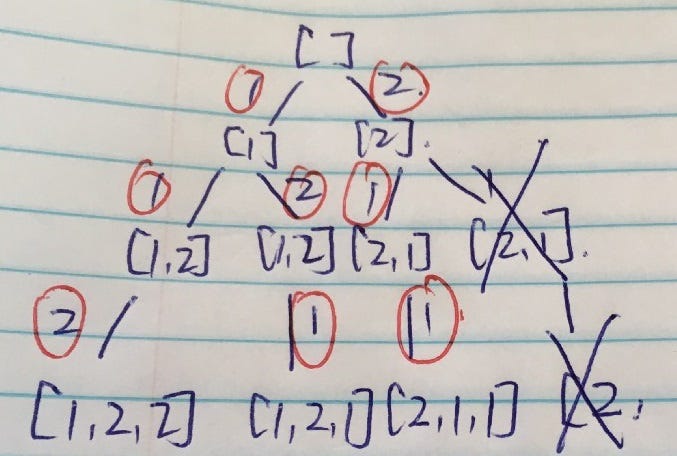 [ ]
1 2
[1] [2].
1 2 1 1
[1,2] [1,2] [2,1] [2,1].
2 1 1
[1,2,2] [1,2,1] [2,1,1] [2,